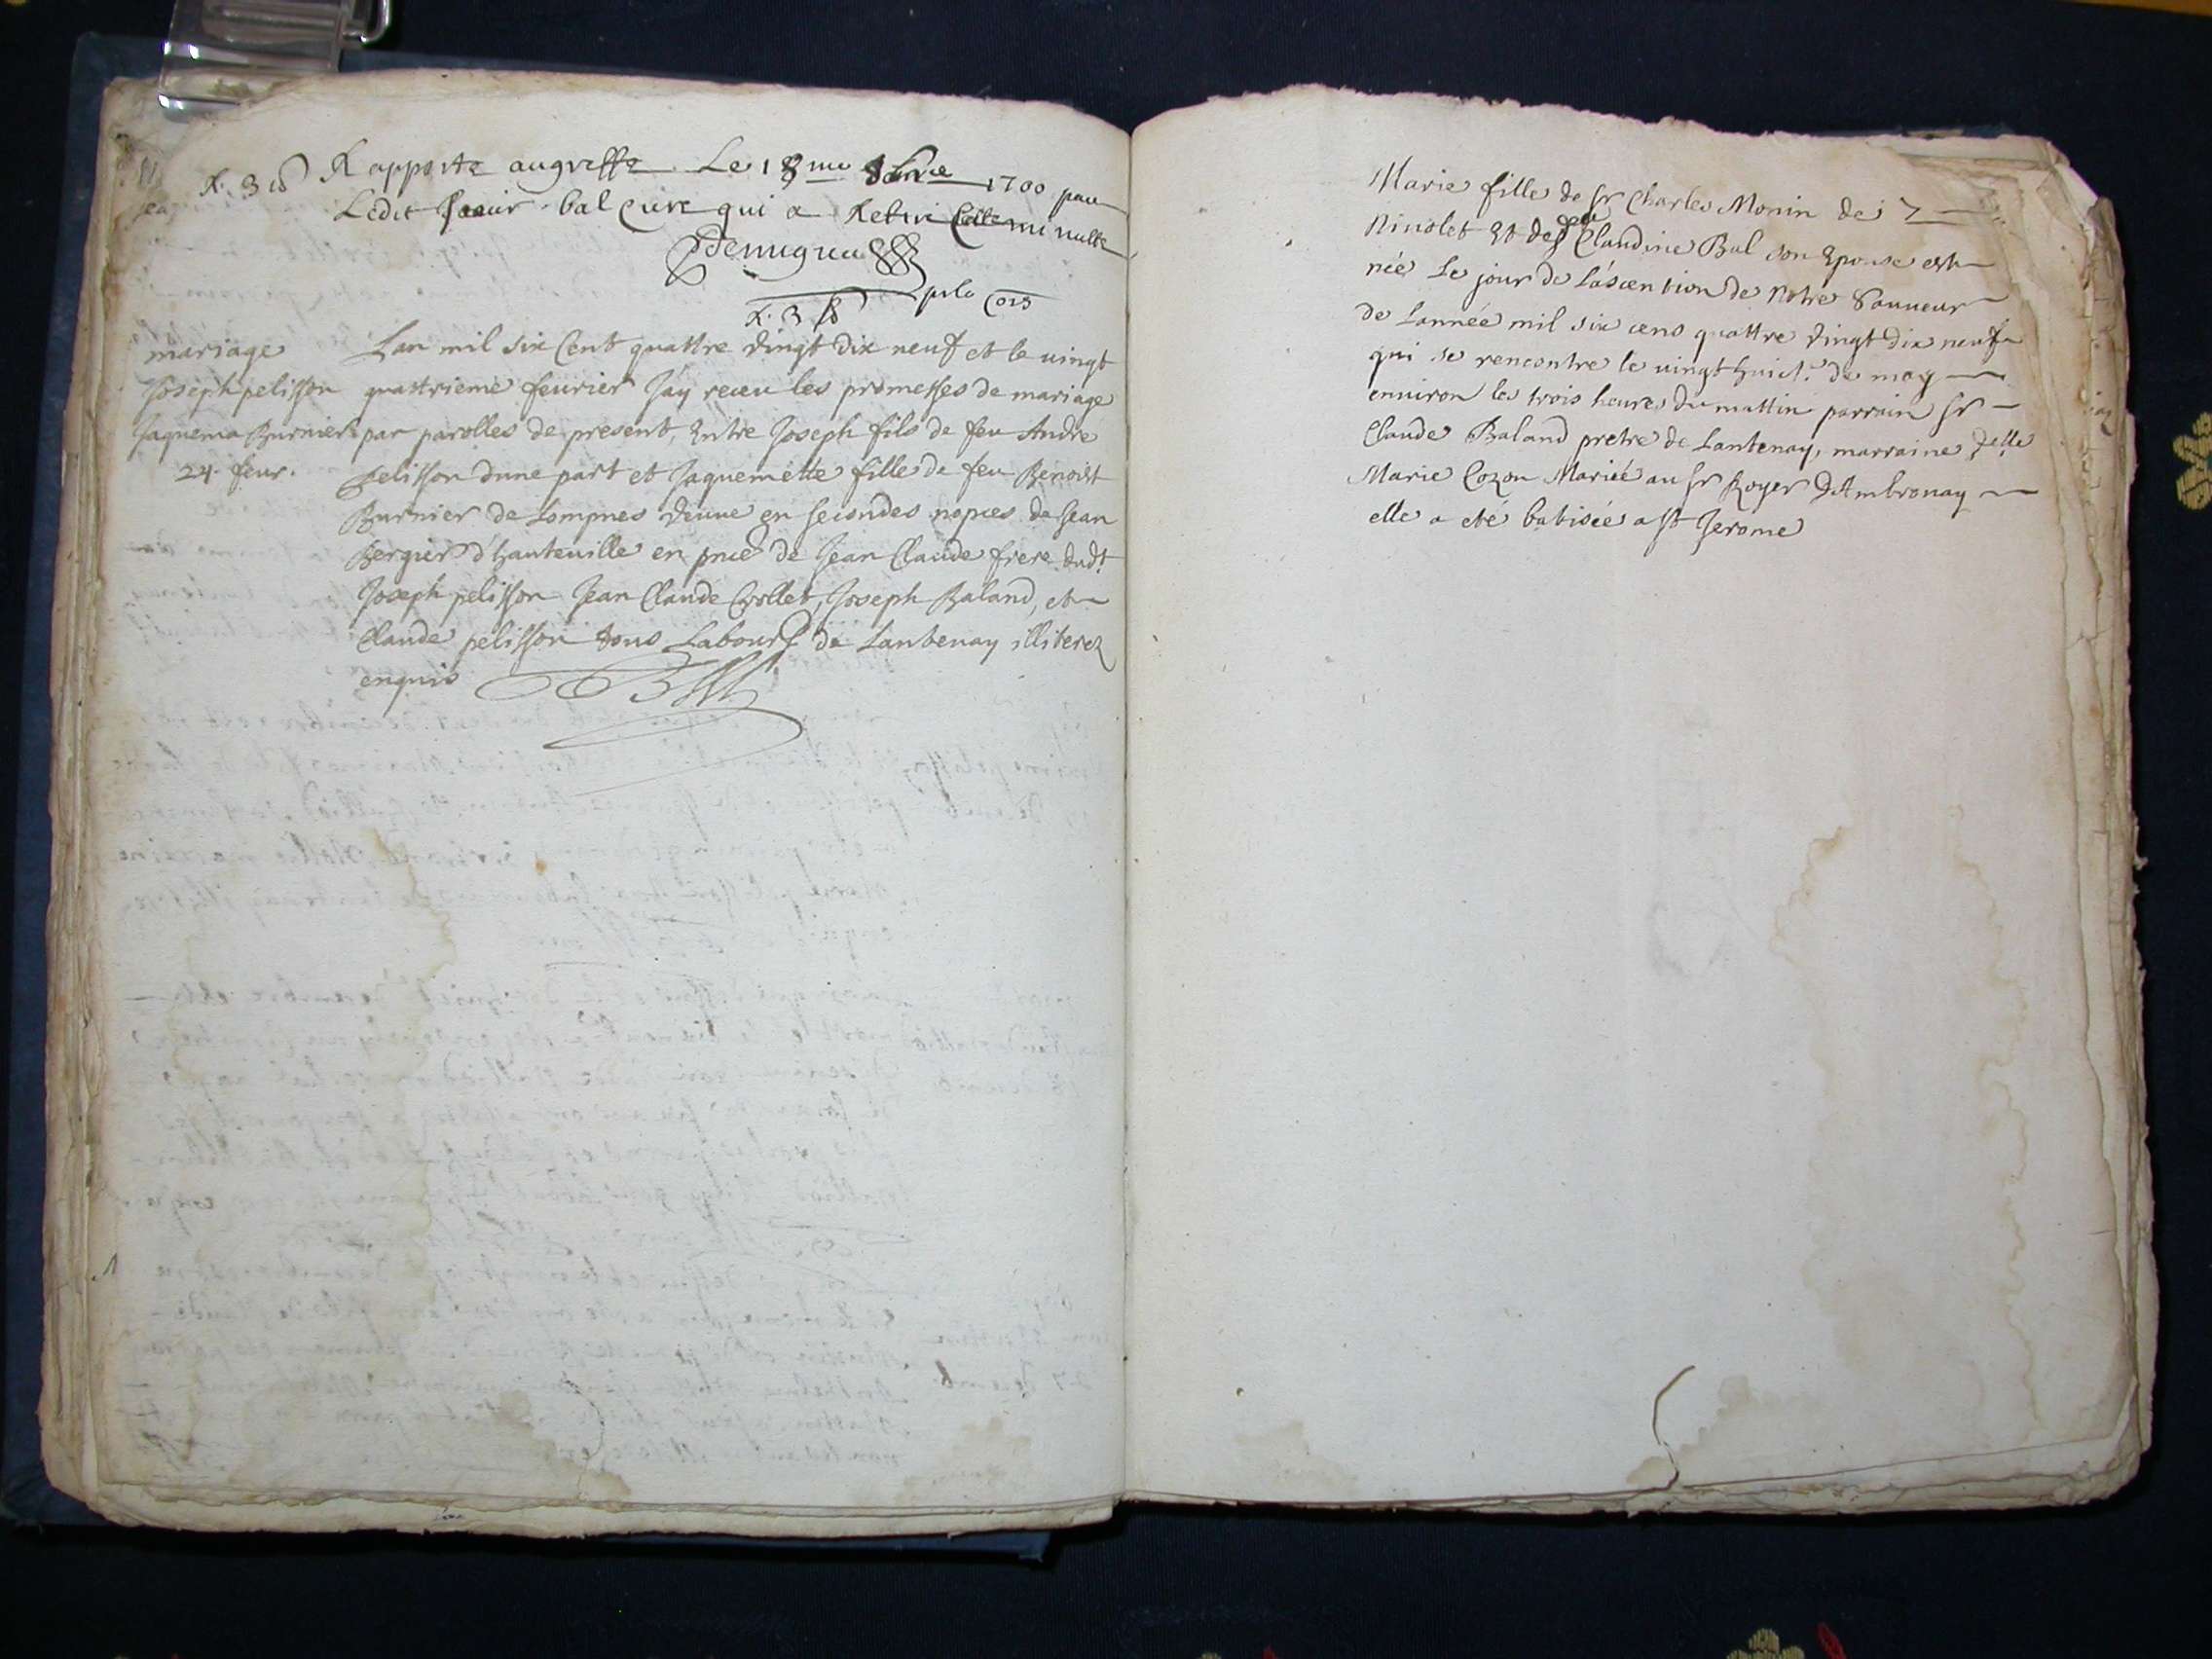 R. 3 s Rapporte augreffe Le 18me 8bre 1700 par
Ledit sieur bal Cure qui a Retire Cette minutte
R. 3 s
mariage
Joseph pelisson
Jaquema Burnier
24. feur.
Lan mil six Cent quattre vingt dix neuf et le vingt
quattrieme feurier J'ay receu les promesses de mariage
par parolles de present, Entre Joseph fils de feu André
pelisson dune part et Jaquemette fille de feu Benoist
Burnier de Lompnes veuue en secondes nopces de Jean
Bergier d'hauteuille en pnce de Jean Claude frere dudt
Joseph pelisson Jean Claude Crollet, Joseph Baland, et
Claude pelisson tous Labours de Lantenay illiterez
enquis
Marie fille de sr Charles Monin de
Niuolet Et de dlle Claudine Bal son Epouse est
née Le jour de L'ascention de Notre Sauueur
de Lannée mil six cens quattre vingt dix neuf
qui se rencontre le vingt huict. de may
enuiron les trois heures du mattin parrain sr
Claude Baland pretre de Lantenay, marraine delle
Marie Cozon Mariée au sr Royer D'Ambronay
elle a eté batisée a st Jerome